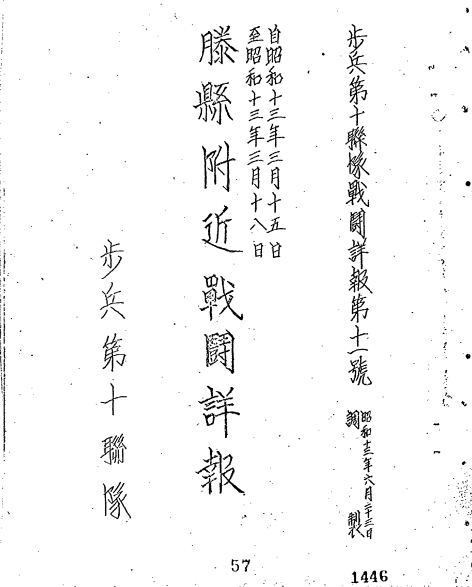 步兵第十聯隊戰鬪詳報第十一號
昭和十三年六月二十三日
調製
自昭和十三年三月十五日
至昭和十三年三月十八日
滕縣附近戰鬪詳報
步兵第十聯隊
57
1446